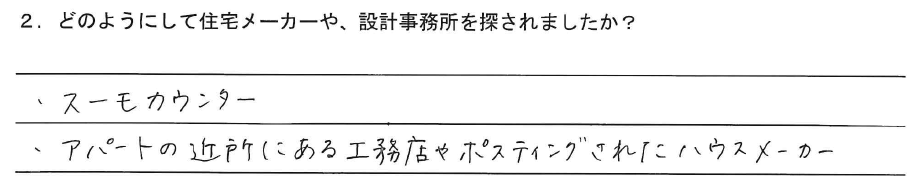 2. どのようにして住宅メーカーや、設計事務所を探されましたか？
・スーモカウンター
・アパートの近所にある工務店やポスティングされたハウスメーカー